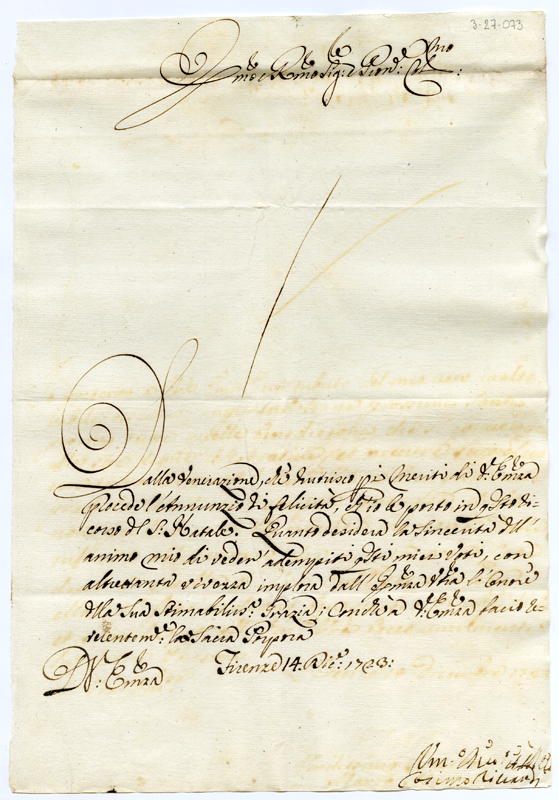 3-27-073
Emo e Rmo Sig:r Pron: Col:mo
Dalla Venerazione, che nutrisco pi Meriti di V: Emza
procede l'Annunzio di felicità, ch'io le porto in gsto di-
corso del S. Natale. Quanto desidera la sincerità dell'
animo mio di veder' adempito gsto mio Voto, con
altrettanta vivezza implora dall' Emza Vra l'Onore
della Sua Stimabiliss:a Grazia; Con che a V: Emza bacio
la Sacra Porpora
D V: Emza Firenze 14. Dic:e 1723:
Cosimo